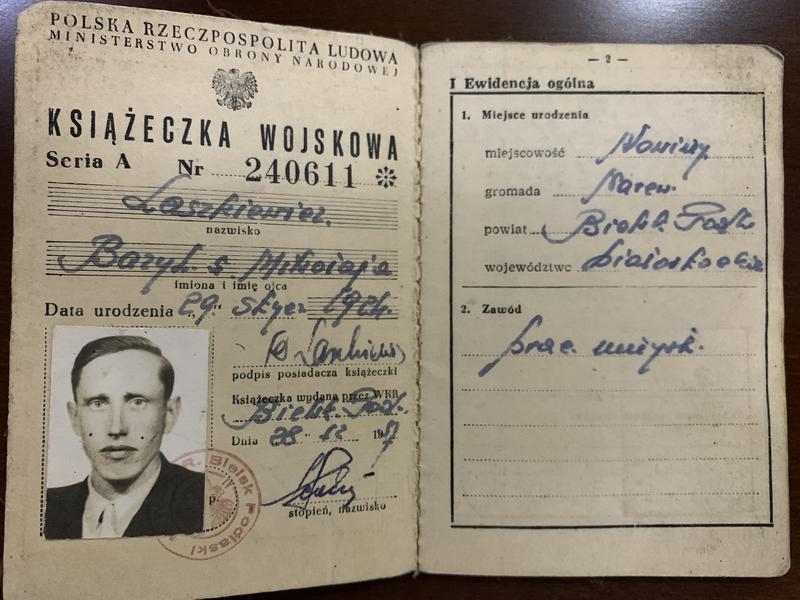 POLSKA RZECZPOSPOLITA LUDOWA
MINISTERSTWO OBRONY NARODOWEJ
KSIĄŻECZKA WOJSKOWA
Seria A Nr 240611
Laszkiewicz
nazwisko
Bazyli s. Mikołaja
imiona i imię ojca
Data urodzenia 29
podpis posiadacza książeczki
Książeczka wydana przez WKR
Bielsk Podl.
Dnia 28
stopień, nazwisko
Bielsk Podlaski
— 2 —
I Ewidencja ogólna
1. Miejsce urodzenia
miejscowość
gromada Narew
powiat Bielsk Podl.
województwo białostockie
2. Zawód
prac. umysł.